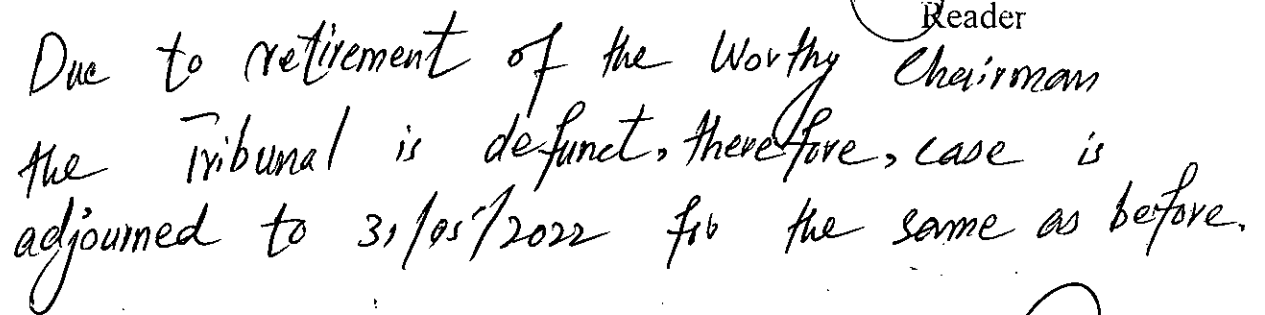 Reader
Due to retirement of the Worthy Chairman
the Tribunal is defunct, therefore, case is
adjourned to 31/05/2022 for the same as before.